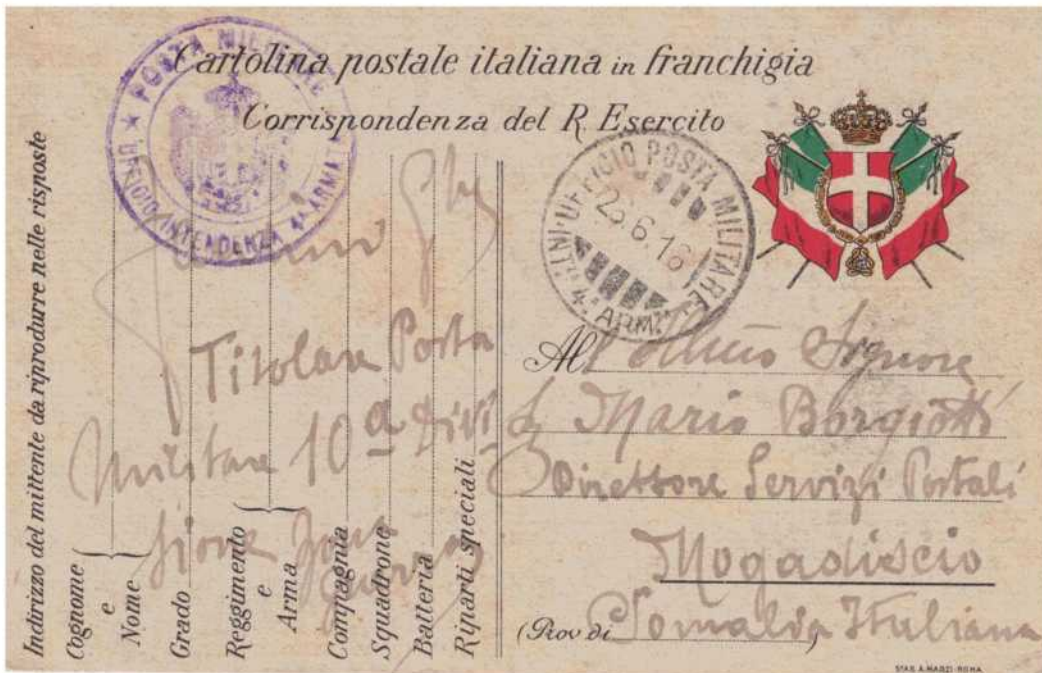 Cartolina postale italiana in franchigia
Corrispondenza del R. Esercito
★ POSTA MILITARE ★
UFFICIO INTENDENZA 4ª ARMATA
UFFICIO POSTA MILITARE
INT.ZA 4ª ARM.TA
25.6.16
Indirizzo del mittente da riprodurre nelle risposte
Cognome
e
Nome
Grado
Reggimento
e
Arma
Compagnia
Squadrone
Batteria
Riparti speciali
Titolare Posta
Militare 10ª Divi
sione Zona
Guerra
Al Signore
Mario Borgiotti
Direttore Servizi Postali
Mogadiscio
(Prov di Somalia Italiana)
STAB. A. MARZI-ROMA